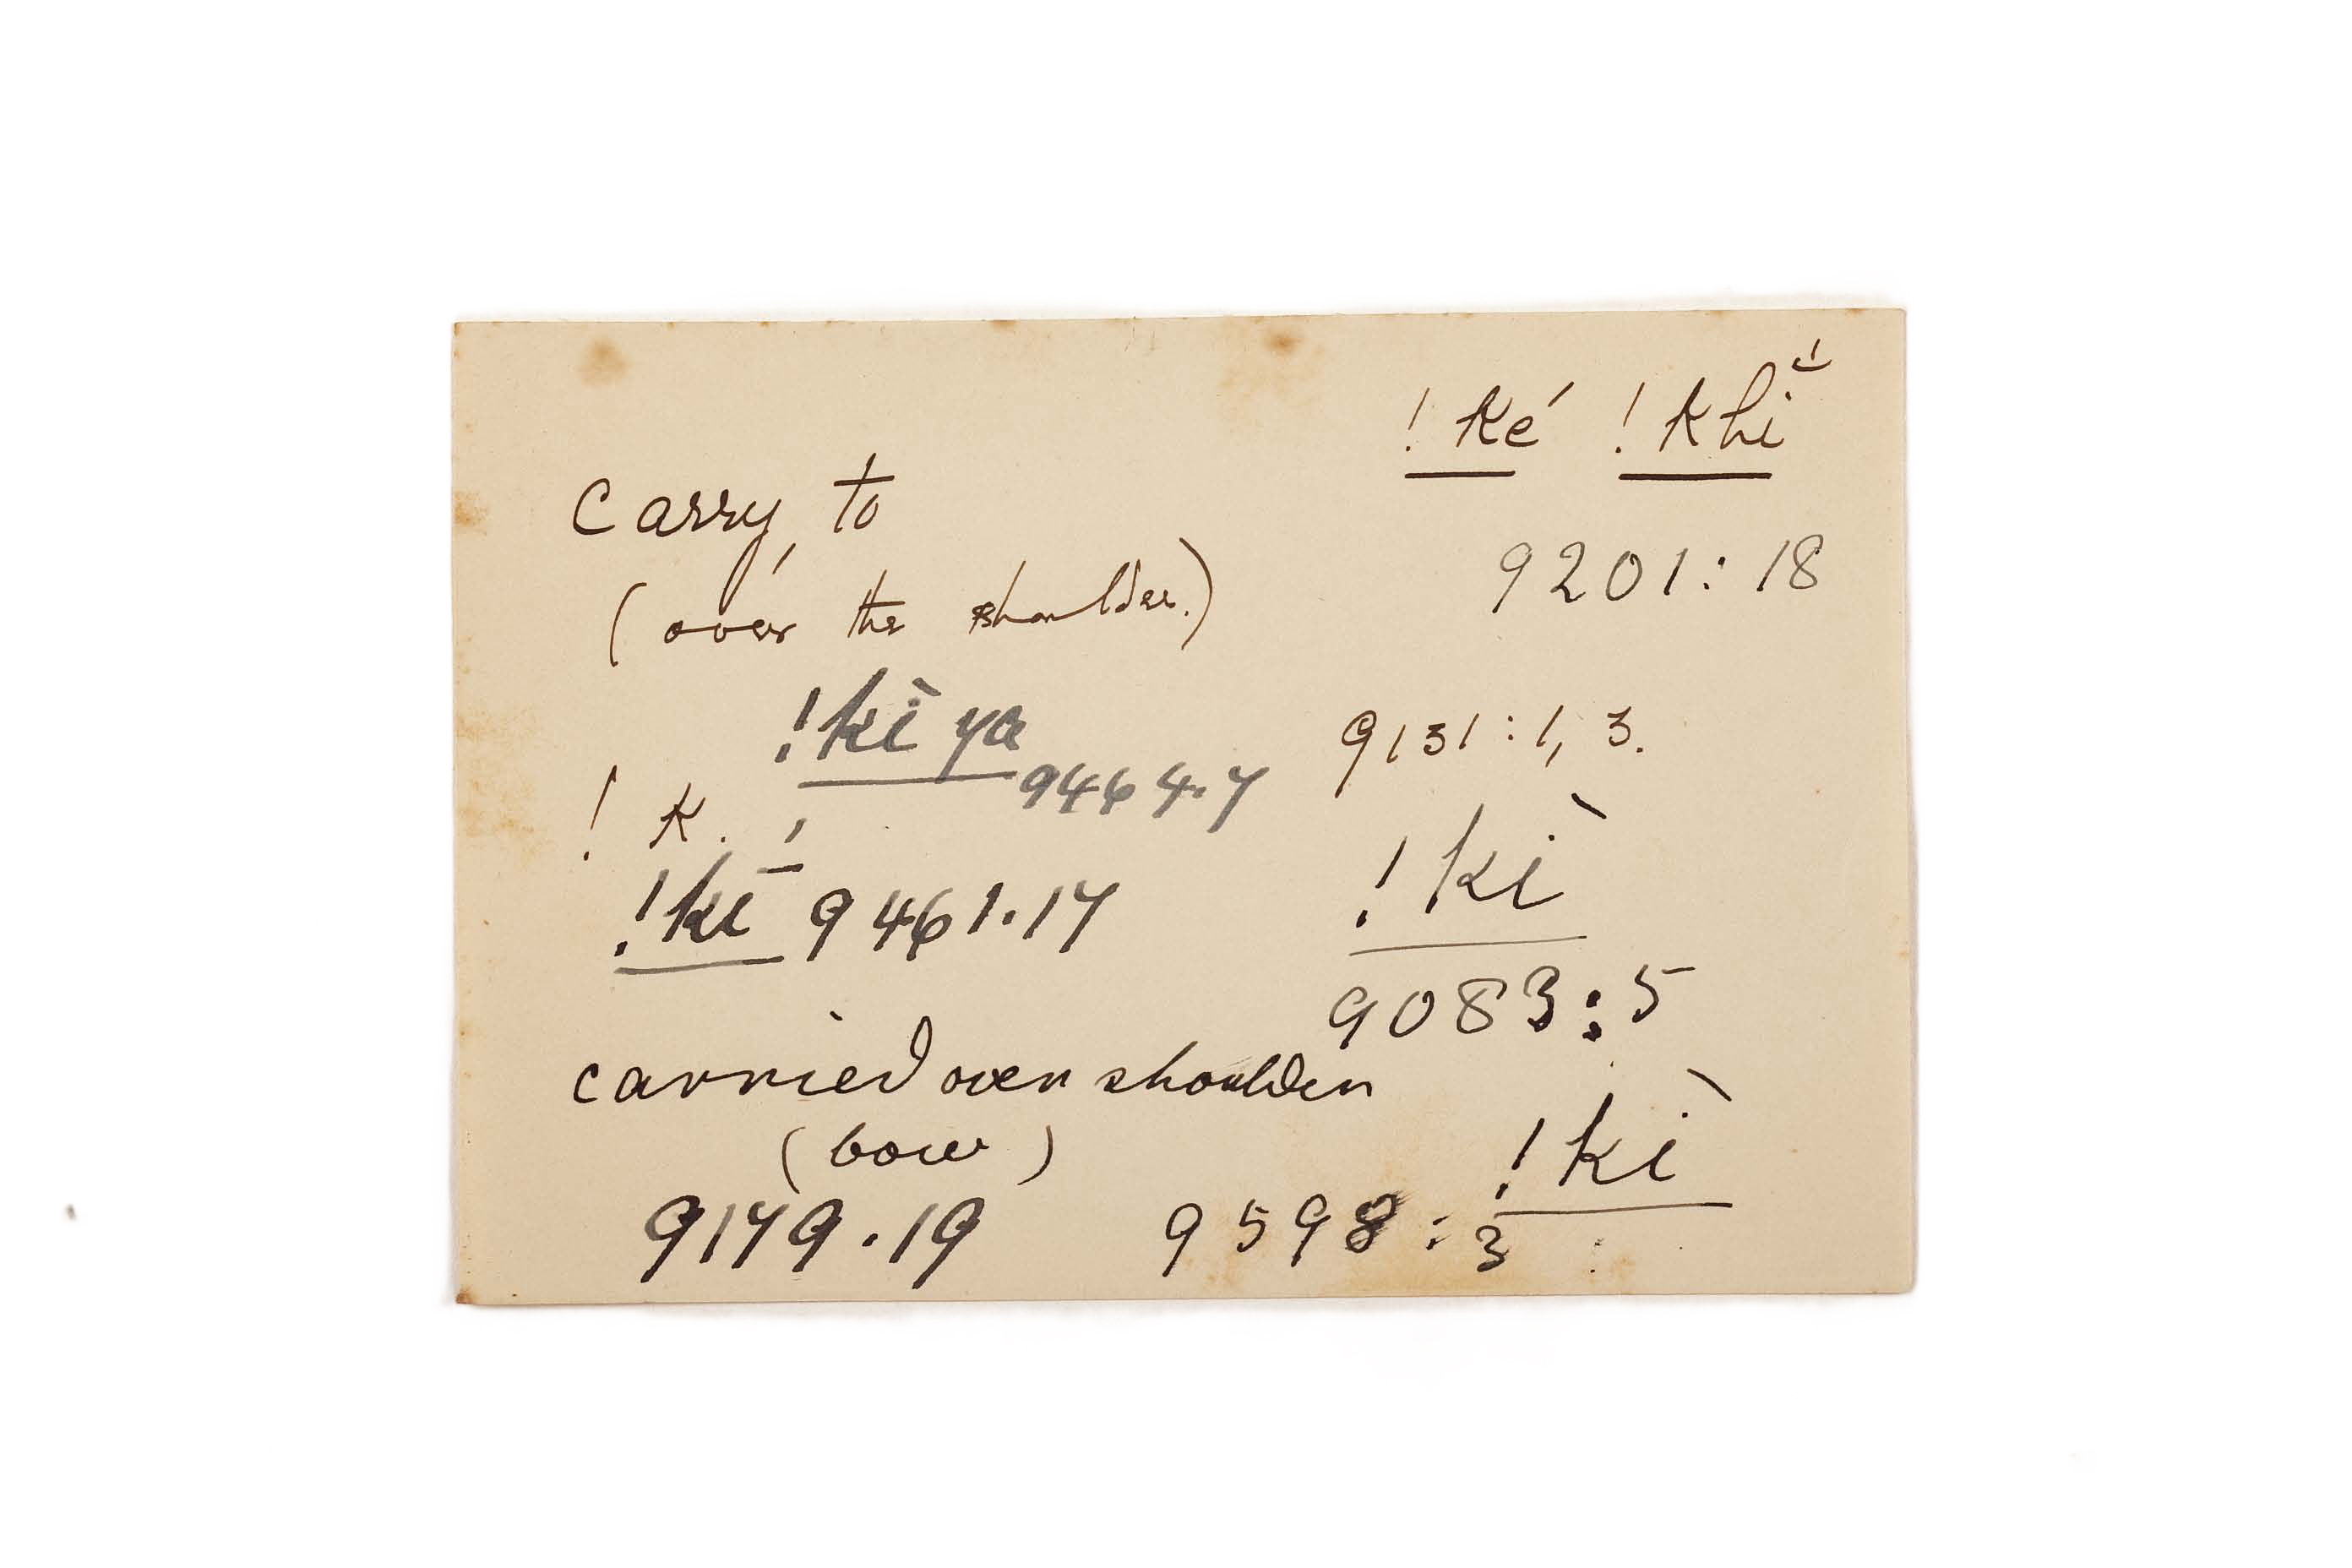 !ké !khĭ́
carry, to
9201:18
(over the shoulder.)
!kì ya
9464.7
9131:1, 3.
! k.
!kī́ 9461.17
!kì
9083:5
carried over shoulder
(bow)
!kì
9179.19
9598:3